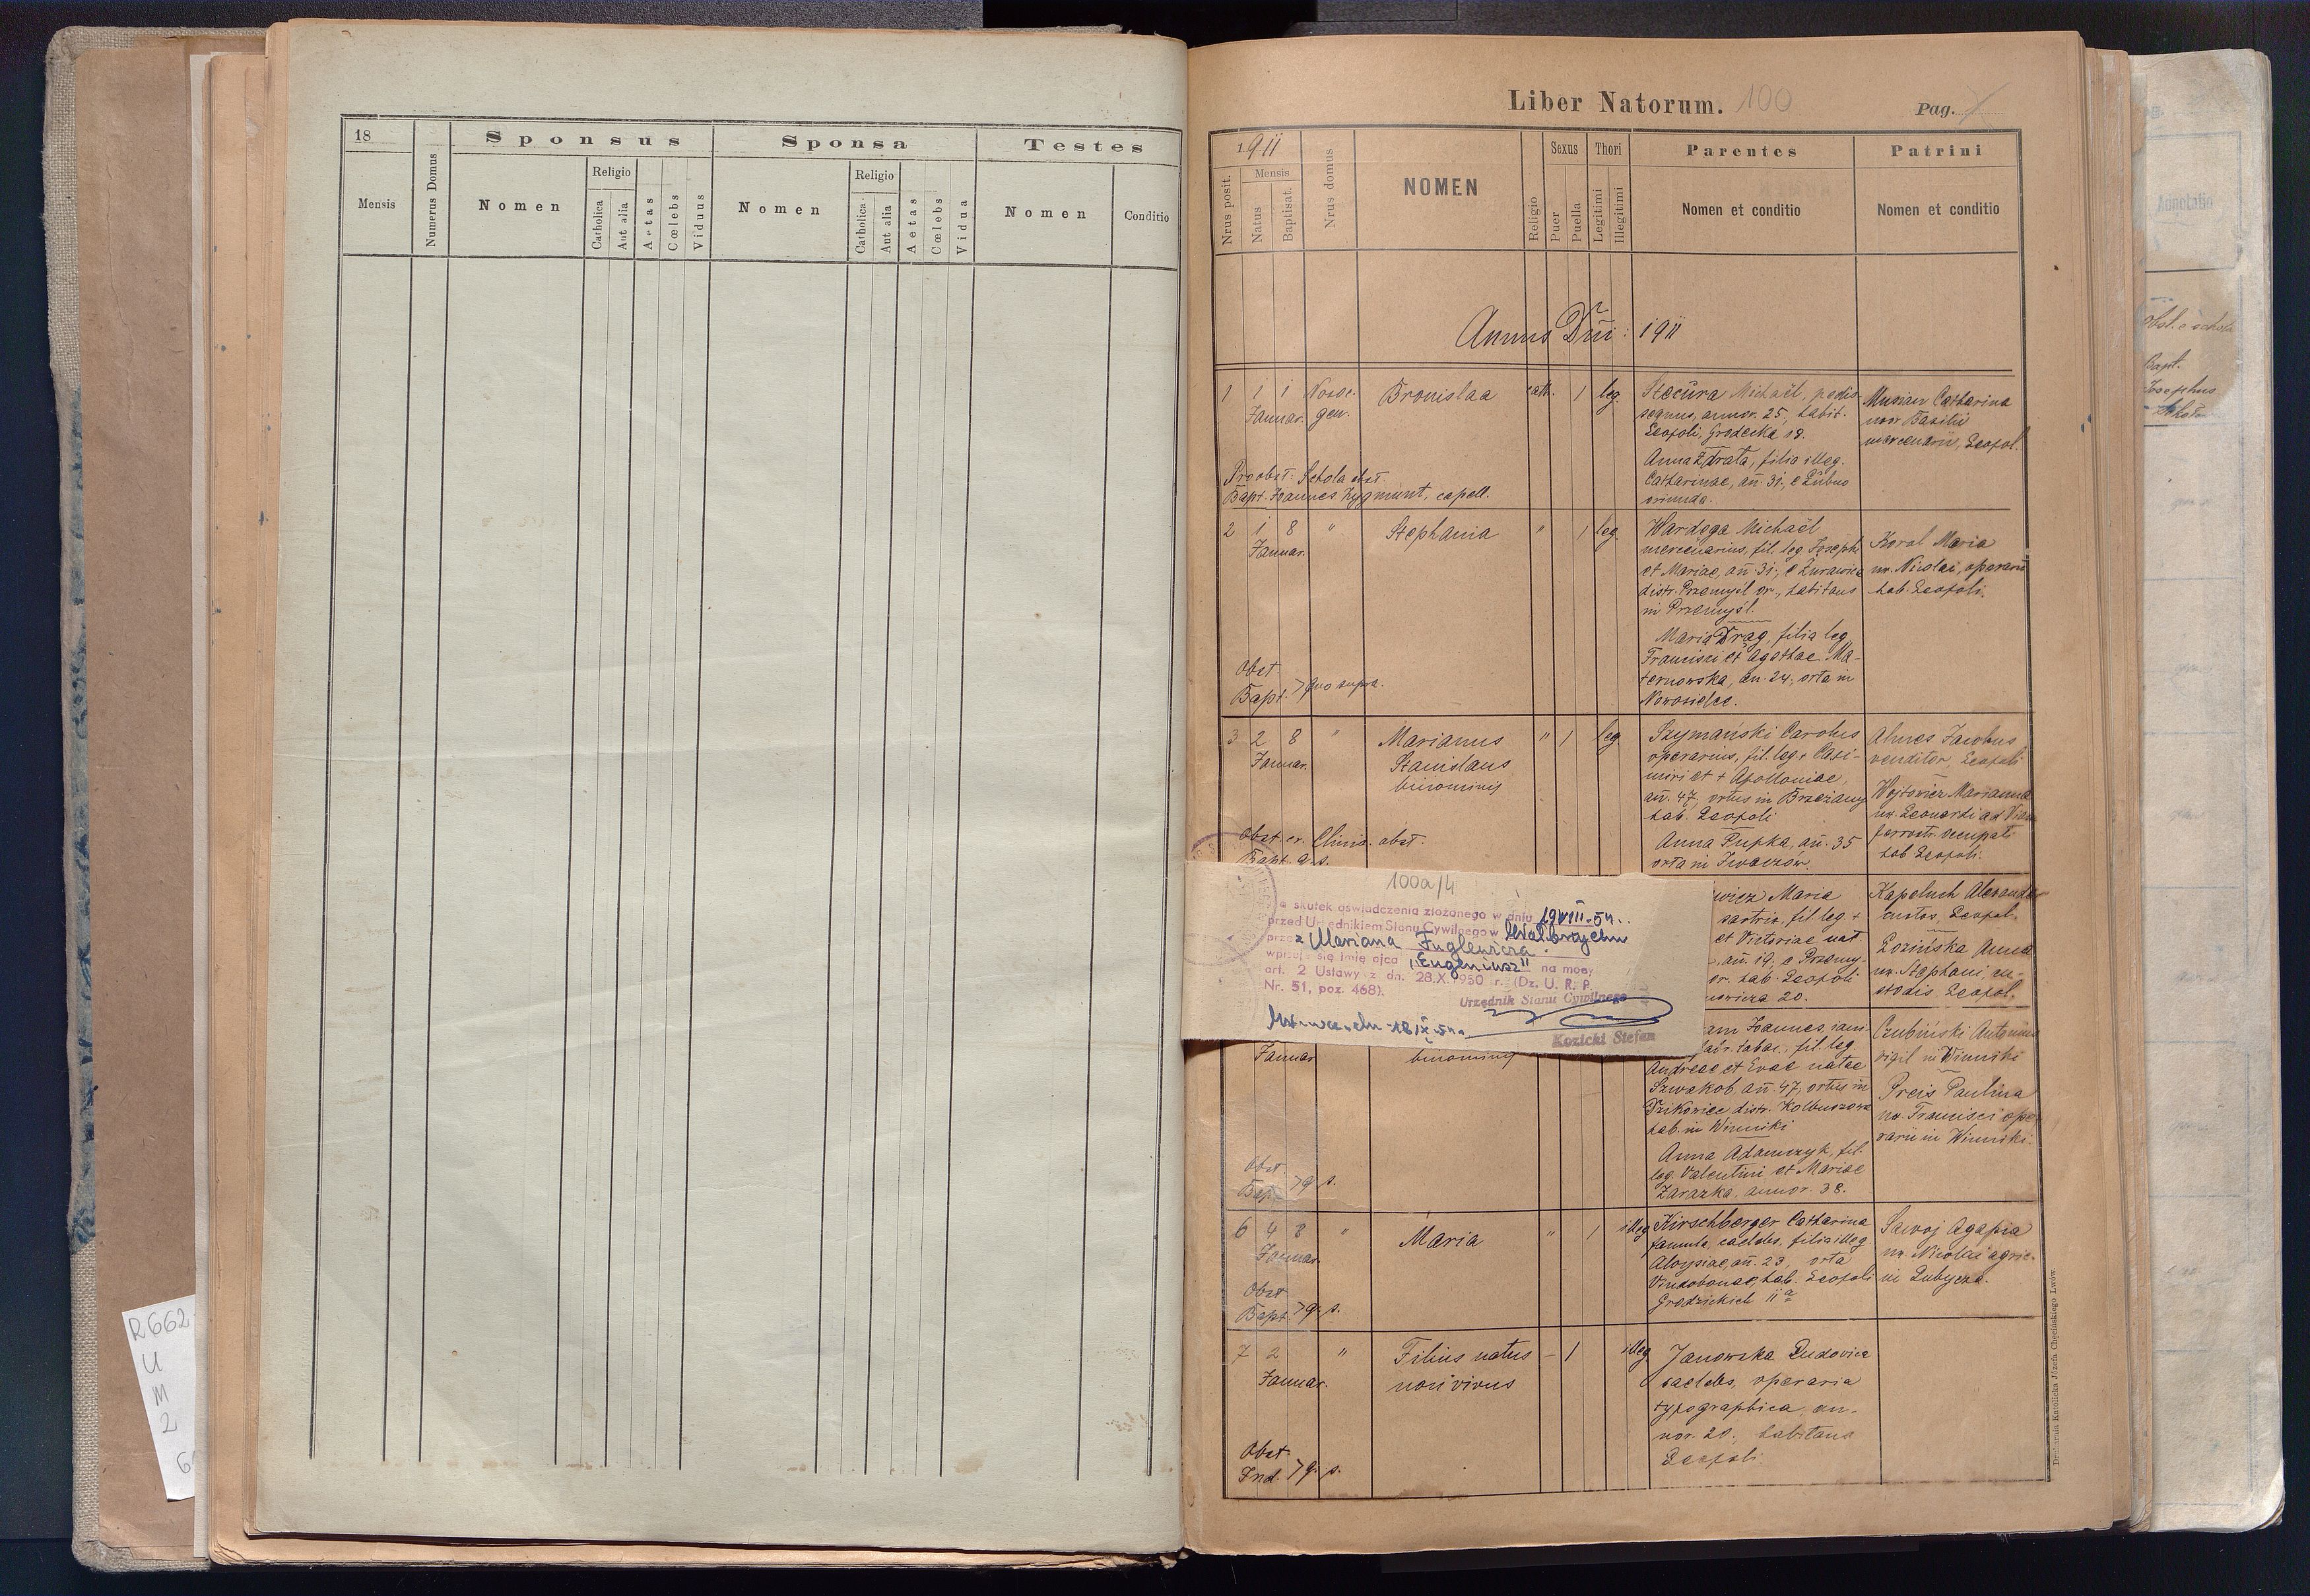 18
Sponsus
Sponsa
Testes
Mensis
Numerus Domus
Nomen
Religio
Catholica
Aut alia
Aetas
Cœlebs
Viduus
Nomen
Religio
Catholica
Aut alia
Aetas
Cœlebs
Vidua
Nomen
Conditio
Liber Natorum. 100
Pag.
1911
Nrus posit.
Mensis
Natus
Baptisat.
Nrus domus
NOMEN
Religio
Sexus
Puer
Puella
Thori
Legitimi
Illegitimi
Parentes
Nomen et conditio
Patrini
Nomen et conditio
Annus Dni: 1911
1 1 1 Nosoc. Bronislaa cath. 1 leg.
Januar. gen.
Stecura Michaël, pedis-
sequus, annor. 25, habit.
Leopoli, Grodecka 18.
Anna Zdrata, filia illeg.
Catharinae, an. 31, e Lubno
oriunda.
Munian Catharina
uxor Basilii
mercenarii, Leopol.
Pro obst: Schola obst.
Bapt. Joannes Zygmunt, capell.
2 1 8 " Stephania " 1 leg.
Januar.
Wardega Michaël
mercenarius, fil. leg. Josephi
et Mariae, an. 31, e Żurawica
distr. Przemyśl or., habitans
in Przemyśl.
Maria Drag, filia leg.
Francisci et Agathae Ma-
ternowska, an. 24, orta in
Nowosielce.
Koral Maria
ux. Nicolai, operarii
hab. Leopoli.
Obst.
Bapt. > quo supra.
3 2 8 " Marianus " 1 leg.
Januar. Stanislaus
binominis
Szymański Carolus
operarius, fil. leg. + Casi-
miri et + Apolloniae,
an. 47, ortus in Brzeżany
hab. Leopoli
Anna Pupka, an. 35
orta in Iwaczów.
Jacobus
venditor, Leopoli
Wojtowicz Marianna
ux. Leonardi ad Viam
ferrostr. occupati
hab. Leopoli.
Obst. ex. Clinic. obst.
Bapt. q. s.
100a/4
a skutek oświadczenia złożonego w dniu 19 VIII-54.
przed Urzędnikiem Stanu Cywilnego w Wałbrzychu
przez Mariana Fuglewicza.
wpisuje się imię ojca "Eugeniusz" na mocy
art. 2 Ustawy z dn. 28.X.1950 r. (Dz. U. R. P.
Nr. 51, poz. 468).
Urzędnik Stanu Cywilnego
Kozicki Stefan
wicz Maria
sartrix, fil. leg. +
et Victoriae nat.
, an. 19, e Przemy-
or. hab. Leopoli
wicza 20.
Kapeluch Alexander
custos, Leopol.
Łozińska Anna
ux. Stephani, cu-
stodis Leopol.
Januar binominis
am Joannes, iani-
fabr. tabac., fil. leg.
Andreae et Evae natae
Szwakob, an. 47, ortus in
Dzikowiec distr. Kolbuszowa
hab. in Winniki
Anna Adamczyk, fil.
leg. Valentini et Mariae
Zarazka, annor. 38.
Czubiński Antonius
vigil in Winniki
Preis Paulina
ux. Francisci ope-
rarii in Winniki.
Obst.
Bapt. > q. s.
6 4 8 " Maria " 1 illeg.
Januar.
Kirschberger Catharina
famula, caelebs, filia illeg.
Aloysiae, an. 23, orta
Vindobonae, hab. Leopoli
Grodzickich 11a
Sawoj Agapia
ux. Nicolai agric.
in Lubycza.
Obst.
Bapt. > q. s.
7 2 " Filius natus - 1 illeg.
Januar. non vivus
Janowska Ludovica
caelebs, operaria
typographica, an-
nor. 20, habitans
Leopoli
Obst.
Ind. > q. s.
Drukarnia Katolicka Józefa Chęcińskiego Lwów.
R662
U
M
2
Annotatio
Bapt.
Josephus